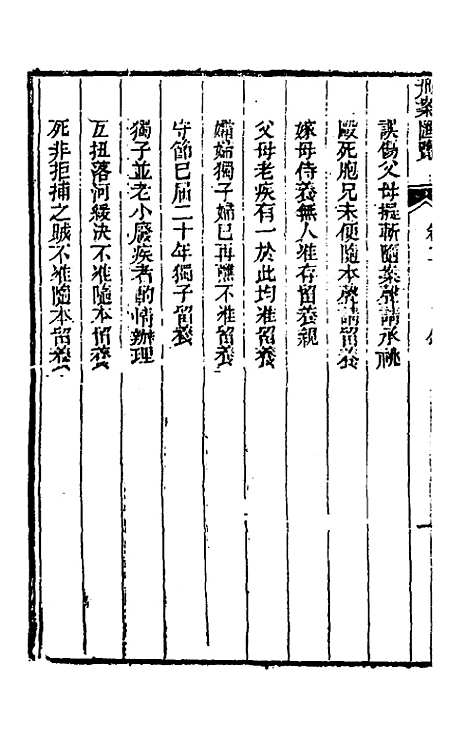 刑案匯覽
卷二
誤傷父母擬斬隨案聲請承祧
毆死胞兄未便隨本聲請留養
嫁母侍養無人准存留養親
父母老疾有一於此均准留養
孀婦獨子婦已再醮不准留養
守節已屆二十年獨子留養
獨子並老小廢疾者酌情辦理
互扭落河緩決不准隨本留養
死非拒捕之賊不准隨本留養